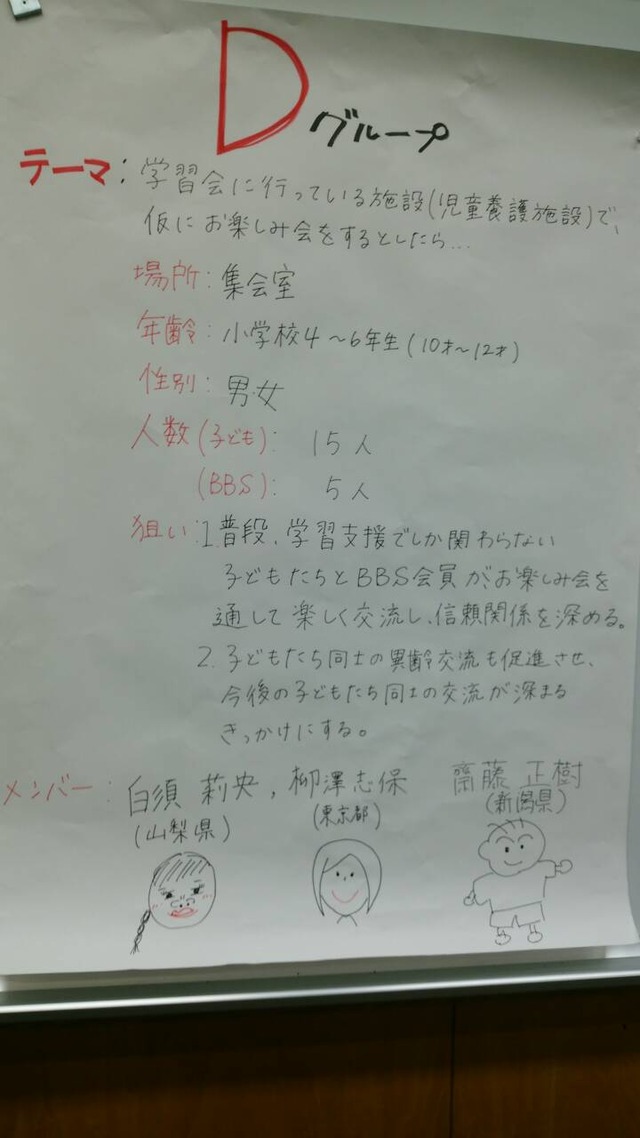 Dグループ
テーマ：学習会に行っている施設(児童養護施設)で、
仮にお楽しみ会をするとしたら…
場所：集会室
年齢：小学校4～6年生(10才～12才)
性別：男・女
人数(子ども)：15人
(BBS)：5人
狙い：1.普段、学習支援でしか関わらない
子どもたちとBBS会員が、お楽しみ会を
通して楽しく交流し、信頼関係を深める。
2.子どもたち同士の異齢交流も促進させ、
今後の子どもたち同士の交流が深まる
きっかけにする。
メンバー：白須 莉央，柳澤志保 齋藤 正樹
(山梨県) (東京都) (新潟県)